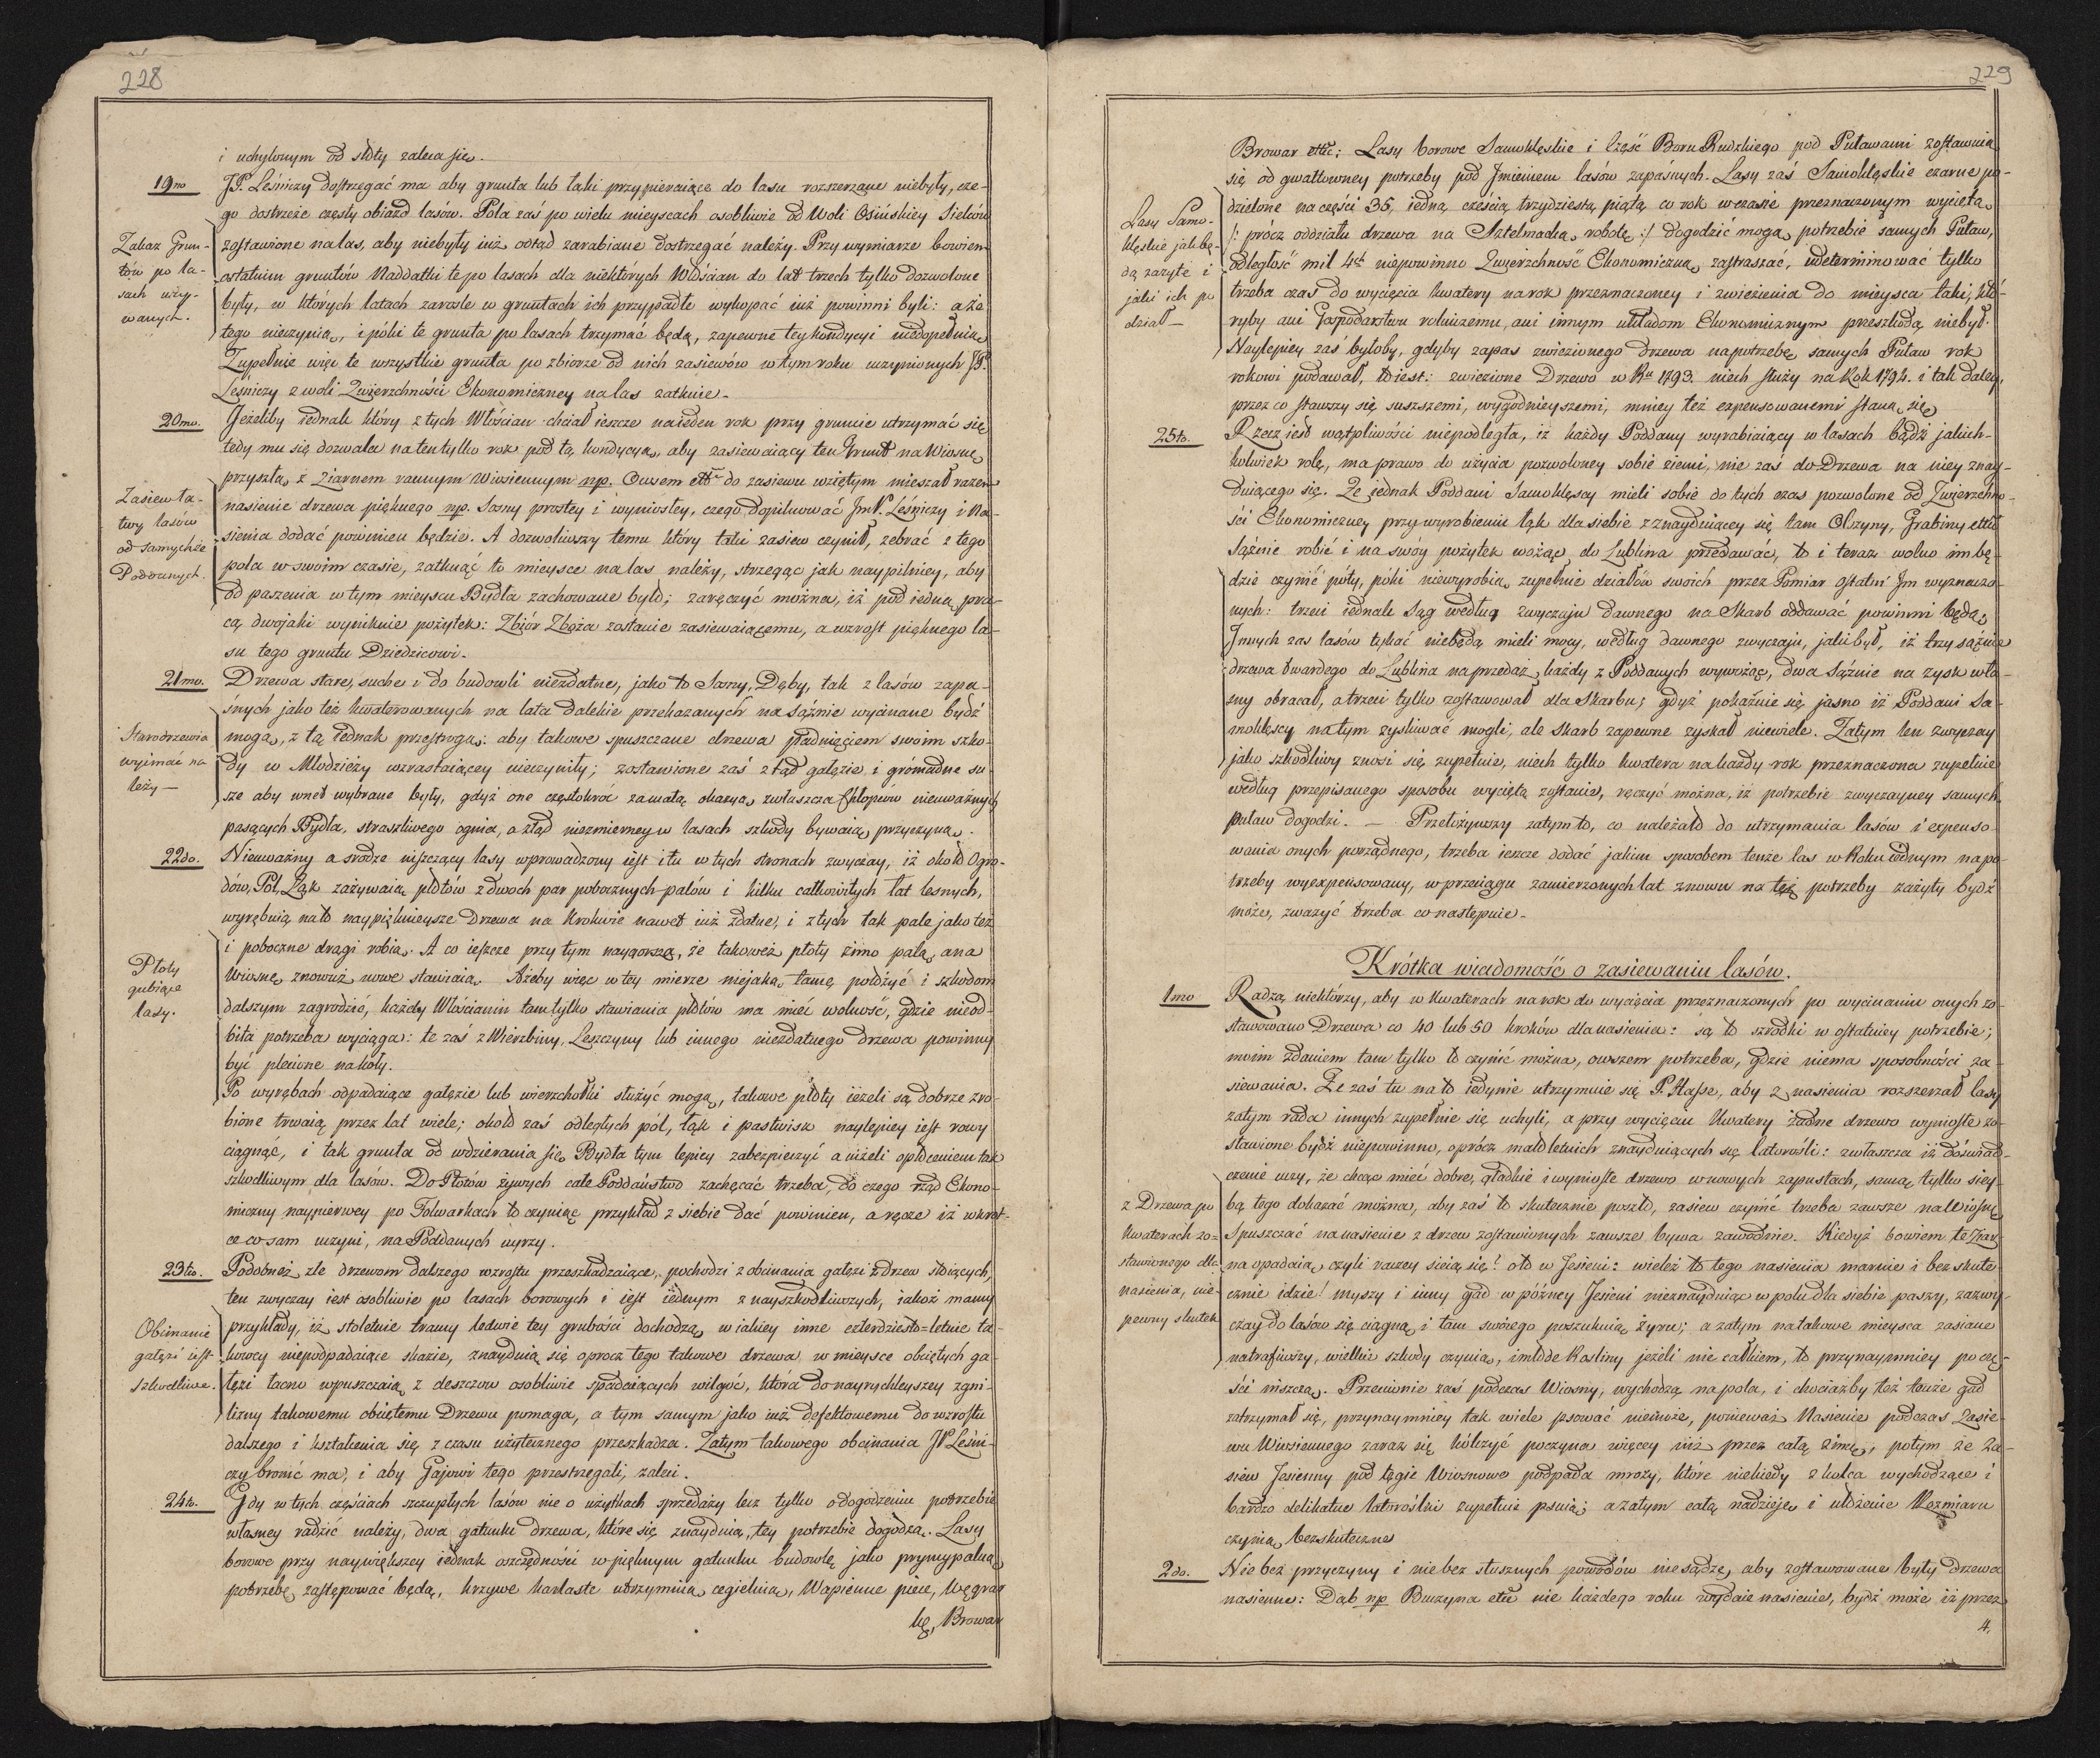 228
i uchylonym od słoty zaleca się.
19no JP. Leśniczy dostrzegać ma aby grunta lub łąki przypieraiące do lasu rozszerzane niebyły, cze-
go dostrzeże częsty obiazd lasów. Pola zaś po wielu mieyscach osobliwie od Woli Osińskiey Sielców
Zakaz Grun-
tów po la-
sach uży-
wanych.
zostawione na las, aby niebyły iuż odtąd zarabiane dostrzegać należy. Przy wymiarze bowiem
ostatnim gruntów Naddatki te po lasach dla niektórych Włościan do lat trzech tylko dozwolone
były, w których latach zarosle w gruntach ich przypadłe wykopać iuż powinni byli: a że
tego nieczynią, i póki te grunta po lasach trzymać będą, zapewne tey kondycyi niedopełnią
Zupełnie więc te wszystkie grunta po zbiorze od nich zasiewów w tym roku uczynionych JP.
Leśniczy z woli Zwierzchności Ekonomiczney na las zatknie.
20mo. Jeżeliby iednak który z tych Włościan chciał ieszcze na ieden rok przy gruncie utrzymać się
tedy mu się dozwala na ten tylko rok pod tą kondycyą, aby zasiewaiący ten Grunt na Wiosnę
przyszłą z Ziarnem rannym Wiosiennym np. Owsem etc do zasiewu wziętym mieszał razem
Zasiew ła-
twy lasów
od samychże
Poddanych.
nasienie drzewa pięknego np. Sosny prostey i wyniosłey, czego dopilnować JmP. Leśniczy i Na-
sienia dodać powinien będzie. A dozwoliwszy temu który taki zasiew czynił, zebrać z tego
pola w swoim czasie, zatknąć to mieysce na las należy, strzegąc jak naypilniey, aby
od paszenia w tym mieyscu Bydła zachowane było; zaręczyć można, iż pod iedną pra-
cą dwojaki wyniknie pożytek: Zbiór Zboża zostanie zasiewaiącemu, a wzrost pięknego la-
su tego gruntu Dziedzicowi.
21mo. Drzewa stare, suche i do budowli niezdatne, jako to Sosny, Dęby, tak z lasów zapa-
snych jako też kwaterowanych na lata dalekie przekazanych na sążnie wycinane bydź
Starodrzewia
wyimać na
leży —
mogą, z tą iednak przestrogą: aby takowe spuszczane drzewa padnięciem swoim szko-
dy w Młodzieży wzrastaiącey nieczyniły; zostawione zaś ztąd gałęzie i gromadne su-
sze aby wnet wybrane były, gdyż one częstokroć za małą okazyą zwłaszcza Chłopców nieuważnych
pasących Bydła, straszliwego ognia, a ztąd niezmierney w lasach szkody bywaią przyczyną.
22do. Nieuważny a srodze niszczący lasy wprowadzony iest i tu w tych stronach zwyczay, iż około Ogro-
dów, Pól, Łąk zażywaią płotów z dwoch par pobocznych palów i kilku całkowitych łat lesnych,
wyrębuią na to naypięknieysze Drzewa na Krokwie nawet iuż zdatne, i z tych tak pale jako też
Płoty
gubiące
lasy.
i poboczne drągi robią. A co ieszcze przy tym naygorszą, że takoweż płoty zimo palą, a na
Wiosnę znowuż nowe stawiaią. Ażeby więc w tey mierze niejaką tamę położyć i szkodom
dalszym zagrodzić, każdy Włościanin tam tylko stawiania płotów ma mieć wolność, gdzie nieod-
bita potrzeba wyciąga: te zaś z Wierzbiny, Leszczyny lub innego niezdatnego drzewa powinny
być plecione na koły.
Po wyrębach odpadaiące gałęzie lub wierzchołki służyć mogą, takowe płoty ieżeli są dobrze zro-
bione trwaią przez lat wiele; około zaś odległych pól, łąk i pastwisk naylepiey iest rowy
ciągnąć, i tak grunta od wdzierania się Bydła tym lepiey zabezpieczyć aniżeli opłoceniem tak
szkodliwym dla lasów. Do Płotów żywych całe Poddaństwo zachęcać trzeba, do czego rząd Ekono-
miczny naypierwey po Folwarkach to czyniąc przykład z siebie dać powinien, a ręczę iż wkrót-
ce co sam uczyni, na Poddanych uyrzy.
23tio. Podobneż złe drzewom dalszego wzrostu przeszkadzaiące, pochodzi z obcinania gałęzi z drzew stoiących,
ten zwyczay iest osobliwie po lasach borowych i iest iednym z nayszkodliwszych, iakoż mamy
Obcinanie
gałęzi iest
szkodliwe.
przykłady, iż stoletnie tramy ledwie tey grubości dochodzą w iakiey inne czterdziesto-letnie ta-
kowey niepodpadaiące skazie, znayduią się oprocz tego takowe drzewa w mieysce obciętych ga-
łęzi łacno wpuszczaią z deszczow osobliwie spadaiących wilgoć, która do nayrychleyszey zgni-
lizny takowemu obciętemu Drzewu pomaga, a tym samym jako iuż defektowemu do wzrostu
dalszego i kształcenia się z czasu użytecznego przeszkadza. Zatym takowego obcinania JP Leśni-
czy bronić ma, i aby Gajowi tego przestrzegali, zaleci.
24to. Gdy w tych częściach szczupłych lasów nie o użytkach sprzedaży lecz tylko o dogodzeniu potrzebie
własney radzić należy, dwa gatunki drzewa, które się znayduią, tey potrzebie dogodzą. Lasy
borowe przy naywiększey iednak oszczędności w pięknym gatunku budowlę, jako pryncypalną
potrzebę zastępować będą, krzywe karlaste utrzymuią cegielnią, Wapienne piece, Węgrar
kę, Browar
229
Browar etc: Lasy borowe Samoklęskie i Część Boru Rudzkiego pod Puławami zostawuią
się od gwałtowney potrzeby pod Jmieniem lasów zapaśnych. Lasy zaś Samoklęskie czarne po-
Lasy Samo-
klęskie jak bę-
dą zażyte i
jaki ich po
dział —
dzielone na części 35, iedną częścią trzydziestą piątą co rok w czasie przeznaczonym wyciętą
/: prócz oddziału drzewa na Sztelmachą robotę :/ dogodzić mogą potrzebie samych Puław,
odległość mil 4ch niepowinno Zwierzchność Ekonomiczną zastraszać, udeterminować tylko
trzeba czas do wycięcia kwatery na rok przeznaczoney i zwiezienia do mieysca taki, któ-
ryby ani Gospodarstwu rolniczemu, ani innym układom Ekonomicznym przeszkodą niebył.
Naylepiey zaś byłoby, gdyby zapas zwiezionego drzewa na potrzebę samych Puław rok
rokowi podawał, to iest: zwiezione Drzewo w Ru 1793. niech służy na Rok 1794. i tak daley,
przez co stawszy się suszszemi, wygodnieyszemi, mniey też expensowanemi staną się
25to. Rzecz iest wątpliwości niepodległa, iż każdy Poddany wyrabiaiący w lasach bądź jakich-
kolwiek rolę, ma prawo do użycia pozwoloney sobie ziemi, nie zaś do Drzewa na niey znay-
duiącego się. Że jednak Poddani Samoklęscy mieli sobie do tych czas pozwolone od Zwierzchno-
ści Ekonomiczney przy wyrobieniu łąk dla siebie z znayduiącey się tam Olszyny, Grabiny etc
Sążnie robić i na swóy pożytek wożąc do Lublina przedawać, to i teraz wolno im bę-
dzie czynić póty, póki niewyrobią zupełnie działów swoich przez Pomiar ostatni Jm wyznaczo-
nych: trzeci iednak Sąg według zwyczaju dawnego na Skarb oddawać powinni będą,
Jnnych zaś lasów tykać niebędą mieli mocy, według dawnego zwyczaju, jaki był, iż trzy sążnie
drzewa twardego do Lublina na przedaż każdy z Poddanych wywożąc, dwa Sążnie na zysk wła-
sny obracał, a trzeci tylko zostawował dla Skarbu; gdyż pokaźnie się jasno iż Poddani Sa-
moklęscy na tym zyskiwać mogli, ale Skarb zapewne zyskał niewiele. Zatym ten zwyczay
jako szkodliwy znosi się zupełnie, niech tylko kwatera na każdy rok przeznaczona zupełnie
według przepisanego sposobu wyciętą zostanie, ręczyć można, iż potrzebie zwyczayney samych
Puław dogodzi. — Przełożywszy zatym to, co należało do utrzymania lasów i expenso-
wania onych porządnego, trzeba ieszcze dodać jakim sposobem tenże las w Roku iednym na po-
trzeby wyexpensowany, w przeciągu zamierzonych lat znowu na też potrzeby zażyty bydź
może, zważyć trzeba co następuie.
Krótka wiadomość o zasiewaniu lasów.
1mo Radzą niektórzy, aby w kwaterach na rok do wycięcia przeznaczonych po wycinaniu onych zo-
stawowano Drzewa co 40 lub 50 kroków dla nasienia: są to szrodki w ostatniey potrzebie;
moim zdaniem tam tylko to czynić można, owszem potrzeba, gdzie niema sposobności za-
siewania. Że zaś tu na to iedynie utrzymuie się P. Hasse, aby z nasienia rozszerzał lasy
zatym rada innych zupełnie się uchyli, a przy wycięciu Kwatery żadne drzewo wyniosłe zo-
stawione bydź niepowinno, oprócz małoletnich znayduiących się latorośli: zwłaszcza iż doświad-
czenie uczy, że chcąc mieć dobre, gładkie i wyniosłe drzewo w nowych zapustach, samą tylko siey-
z Drzewa po
kwaterach zo-
stawionego dla
nasienia, nie
pewny skutek
bą tego dokazać można, aby zaś to skutecznie poszło, zasiew czynić trzeba zawsze na Wiosnę
Spuszczać na nasienie z drzew zostawionych zawsze bywa zawodnie. Kiedyż bowiem te Ziar-
na opadaią, czyli raczey sieią się! oto w Jesieni: wieleż to tego nasienia marnie i bez skute-
cznie idzie! myszy i inny gad w późney Jesieni nieznayduiąc w polu dla siebie paszy, zazwy-
czay do lasów się ciągną i tam swoiego poszukuią żyru; a zatym na takowe mieysca zasiane
natrafiwszy, wielkie szkody czynią, i młode Rosliny jeżeli nie całkiem, to przynaymniey po czę-
ści niszczą. Przeciwnie zaś podczas Wiosny, wychodzą na pola, i chociażby też tenże gad
zatrzymał się, przynaymniey tak wiele psować niemoże, ponieważ Nasienie podczas Zasie-
wu Wiosiennego zaraz się kólczyć poczyna więcey niż przez całą zimę, potym że Za-
siew Jesienny pod tęgie Wiosnowe podpada mrozy, które niekiedy z kolca wychodzące i
bardzo delikatne latorośłki zupełnie psuią; a zatym całą nadzieję i ułożenie Rozmiaru
czynią bezskuteczne
2do. Nie bez przyczyny i nie bez słusznych powodów nie sądzę, aby zostawowane były drzewa
nasienne: Dąb np Buczyna etc nie każdego roku wydaie nasienie, bydź może iż przez
4.